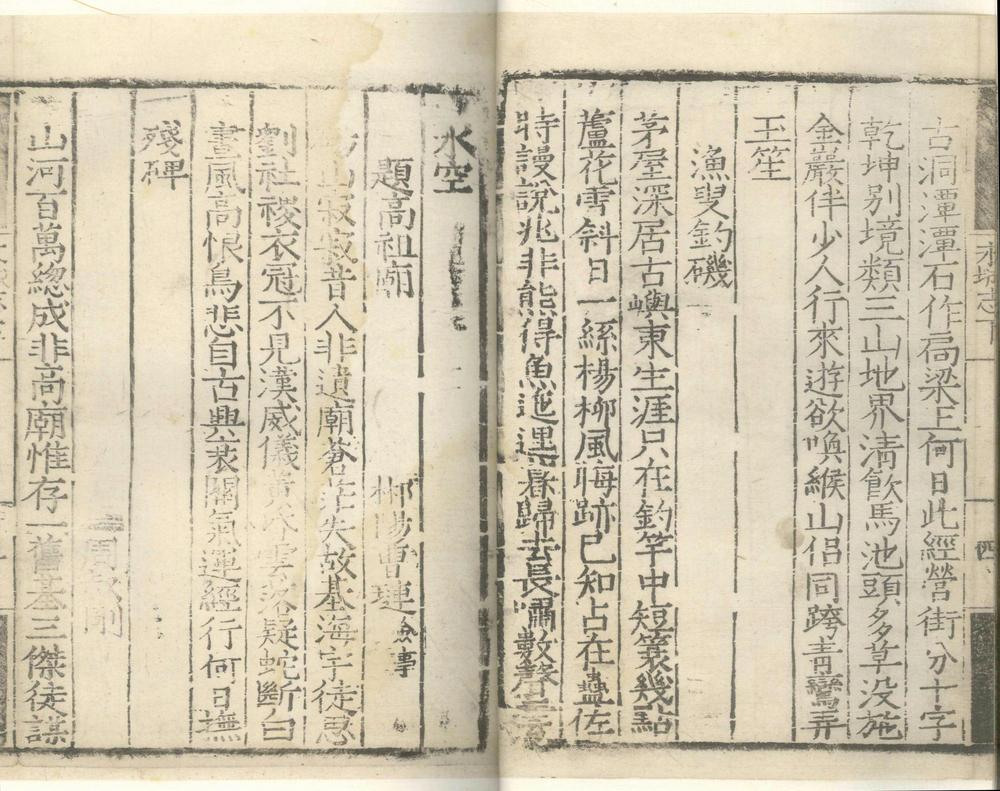 永城志下
四
古洞潭潭石作扃梁上何日此經營街分十字
乾坤別境類三山地界清飲馬池頭多草没施
金巖伴少人行來遊欲喚緱山侣同跨青鸞弄
玉笙
漁叟釣磯
茅屋深居古嶼東生涯只在釣竿中短蓑幾點
蘆花雪斜日一絲楊柳風晦跡已知占在蠱佐
時謾説兆非熊得魚迤邐歸去長嘯數聲
水空
題高祖廟
郴陽曹璉僉事
寂寂昔人非遺廟蒼茫失故基海宇徒思
劉社稷衣冠不見漢威儀雲落疑蛇斷白
晝風高恨鳥悲自古興衰關氣運經行何日撫
殘碑
周
山河百萬總成非高廟惟存一舊基三傑徒謀